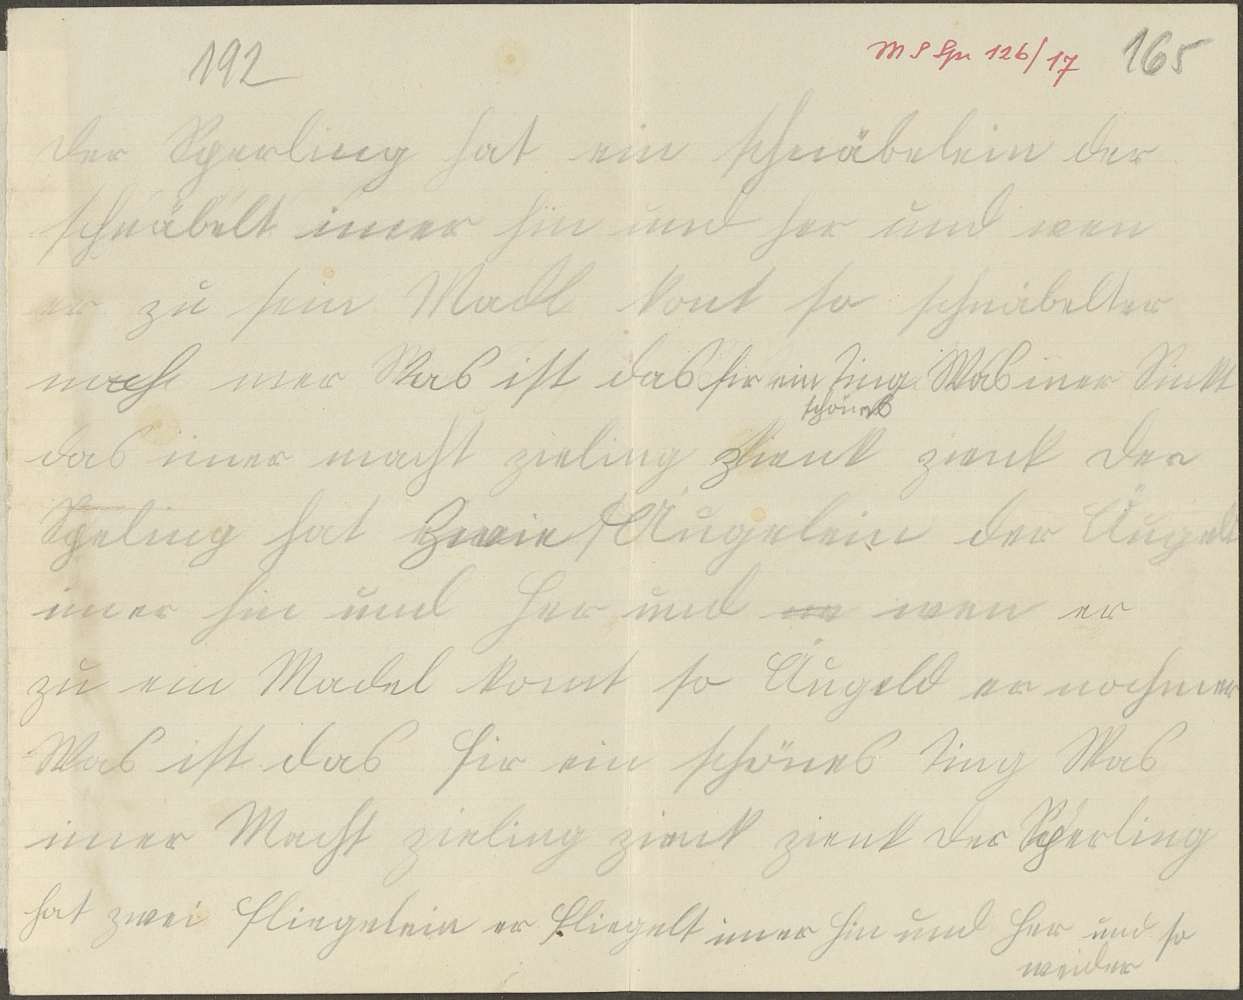 192
M S Spr 126/17 165
der Sperling hat ein schnäbelein der
schnäbelt imer hin und her und wen
er zu sein Madl komt so schnäbelter
noch mer Was ist das fir ein Ting Was imer Sinkt
schönes
das imer macht zieling zienk zienk der
Speling hat Zwie Äugelein der Äugelt
imer hin und Her und wen er
zu ein Madel komt so Äugeld er noch mer
Was ist das fir ein schönes Ting Was
imer Macht zieling zienk zienk der Sperling
hat zwei fliegelein er fliegelt imer hin und Her und so
weider